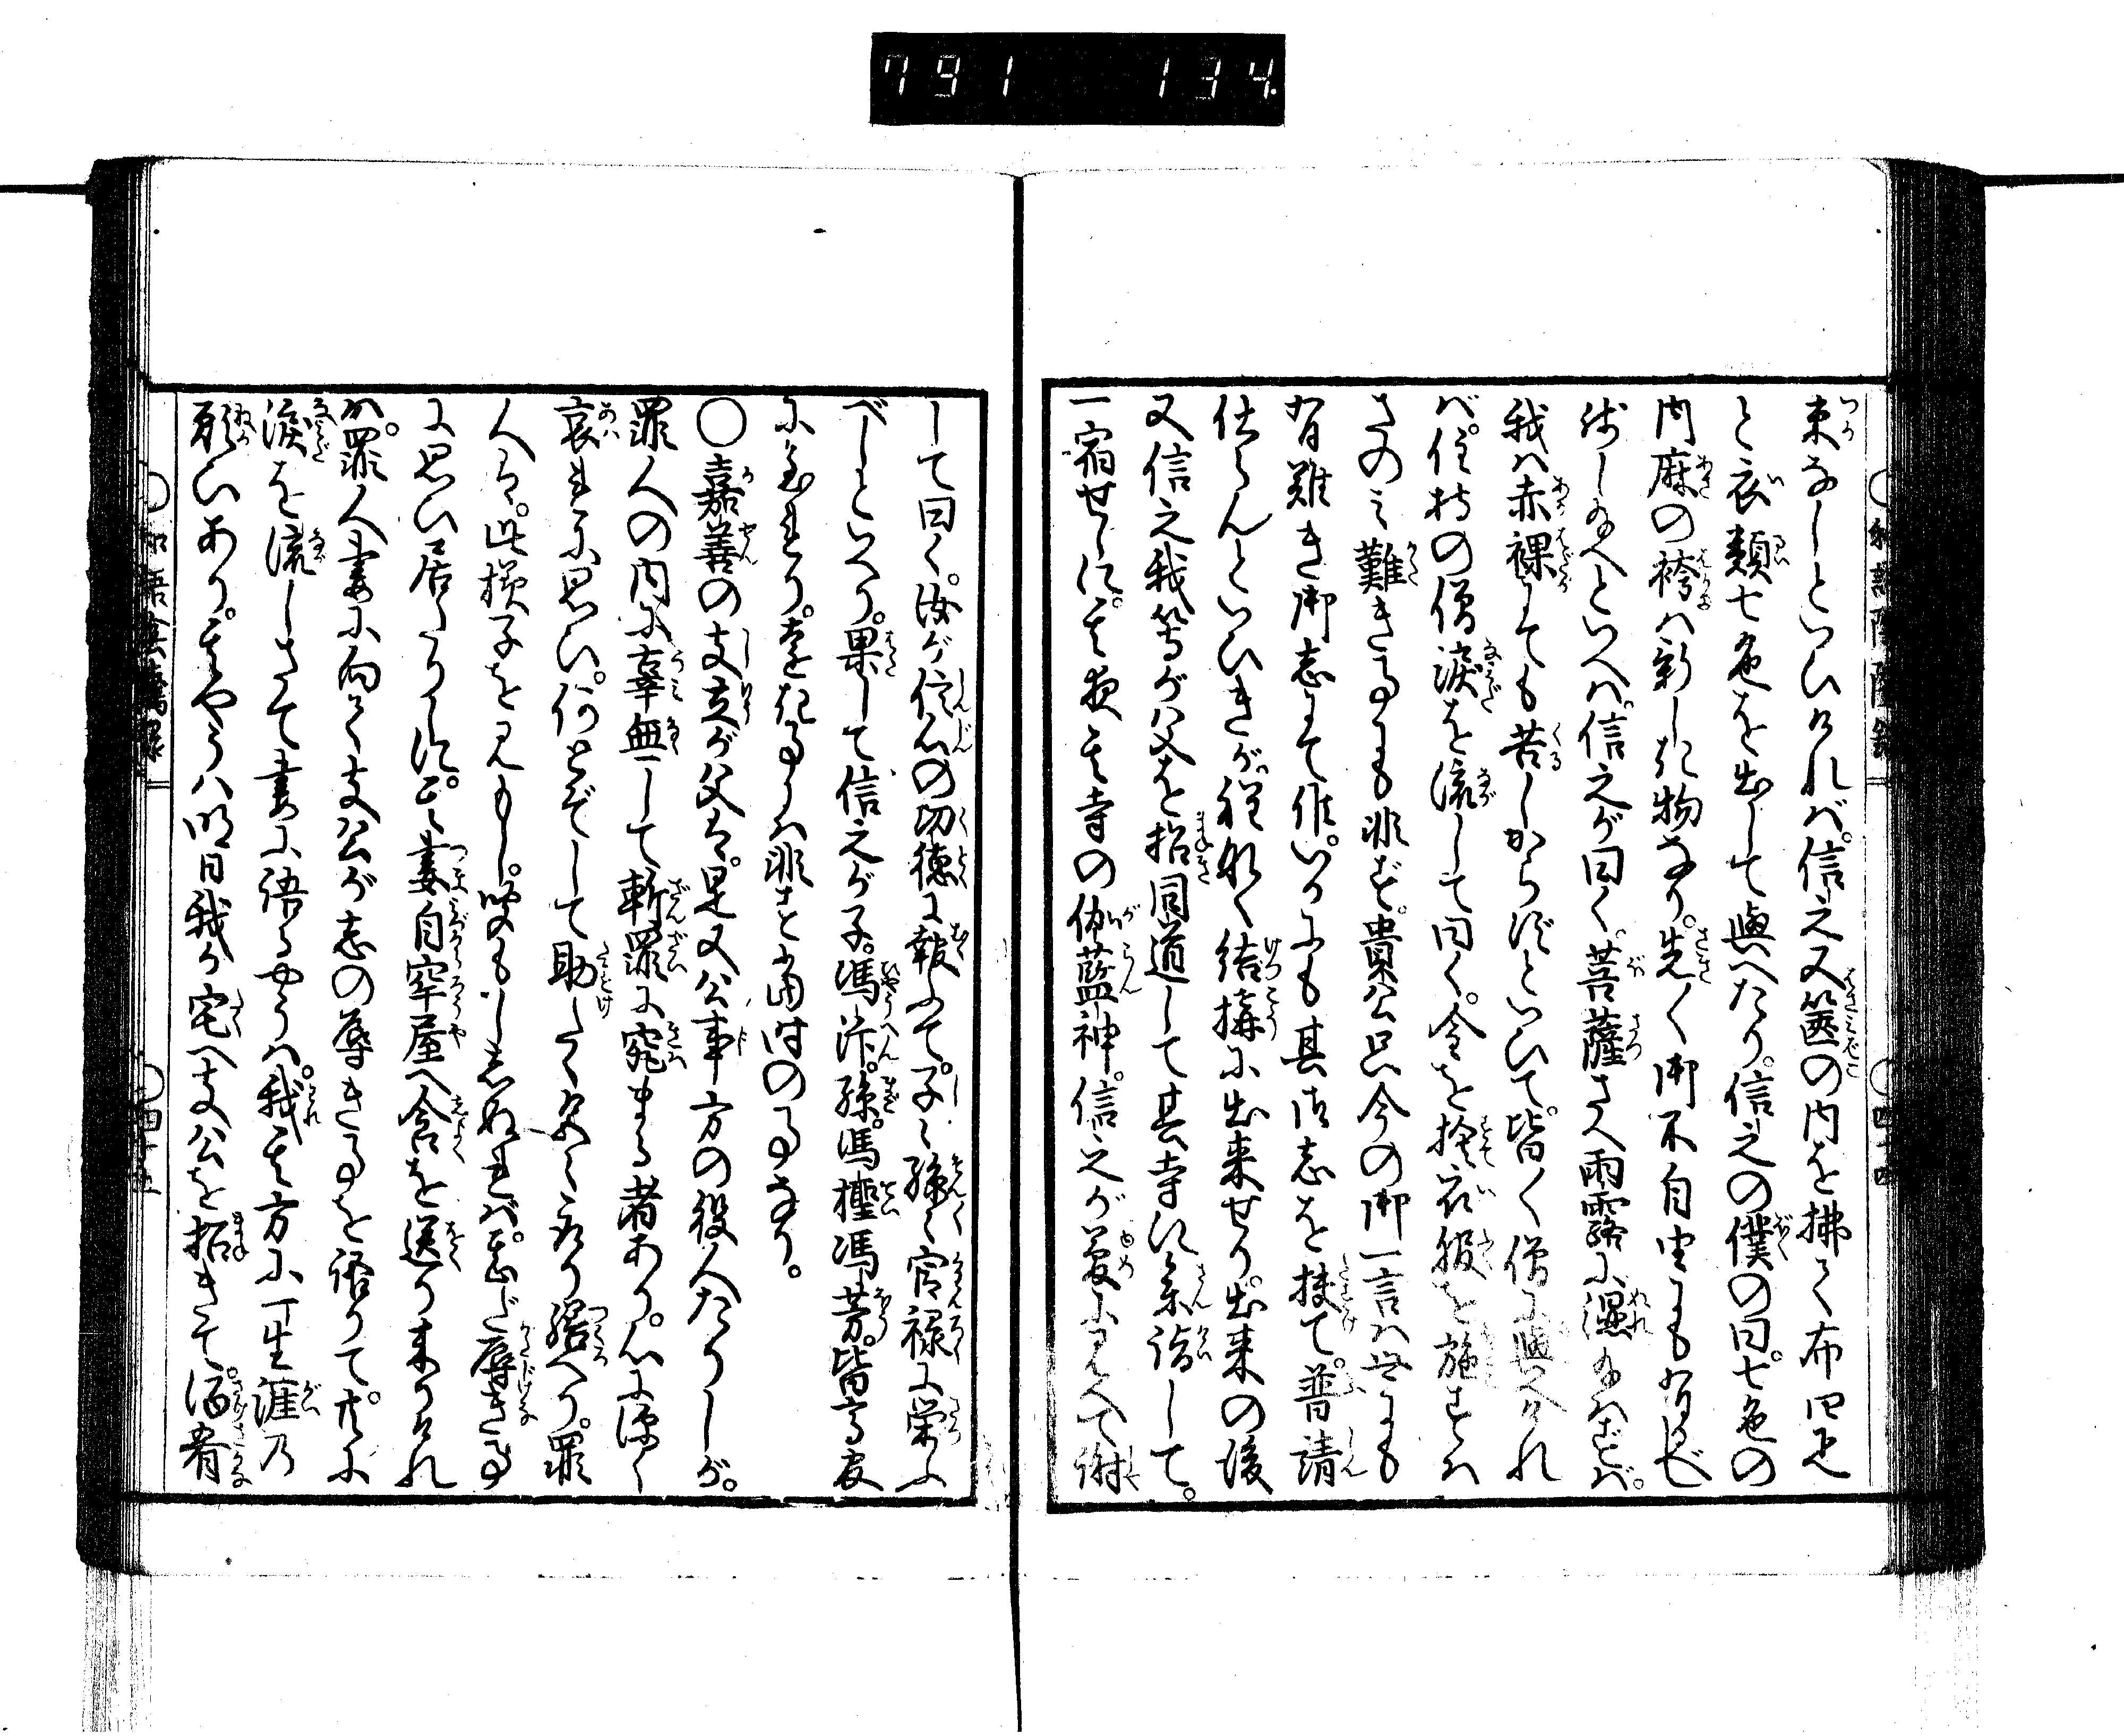 791 134.
束なしといひければ。信之又篋の内を拂て布四疋
と衣類七色を出して與へたり。信之の僕の曰。七色の
内麻の袴は新しき物なり。先々御不自由にも有べし
残し給へといへば。信之が曰く。菩薩さへ雨露に濕給はずば。
我は赤裸にても苦しからずといひて。皆々僧に與へければ
ば。住持の僧涙を流して曰く。金を捨衣服を施すは
さのみ難き事にも非ず。貴公只今の御一言は世にも
有難き御志にて候。いかにも其御志を扶て。普請
仕らんといひきが。程なく結搆に出来せり。出来の後
又信之我等が父を招同道して其寺に参詣して。
一宿せしに。其夜其寺の伽藍神。信之が夢に見へて謝
して曰く。汝が信心の切徳に報ふて。子々孫々官禄に栄ふ
べしといへり。果して信之が子。馮汴。孫。馮樫馮芳。皆高官
に至れり。遠き事には非ず當時の事なり。
○嘉善の支立が父は。是又公事方の役人たりしが。
罪人の内に辜無して斬罪に究まる者あり。心に深く
哀れに思ひ。何とぞして助たく思ひ取り繕へり。罪
人は。此様子を見もし。聞もし知ぬれば。甚だ辱き事
に思ひ居たりしに。其妻自牢屋へ食を送り来りけれ
ば。罪人妻に向て支公が志の辱き事を語りて。共に
涙を流しさて妻に語るやうは。我其方に一生涯の
願ひあり。其やうは明日我が宅へ支公を招きて。酒肴
○和語陰隲録 ○四十四
○和語陰隲録 ○四十五